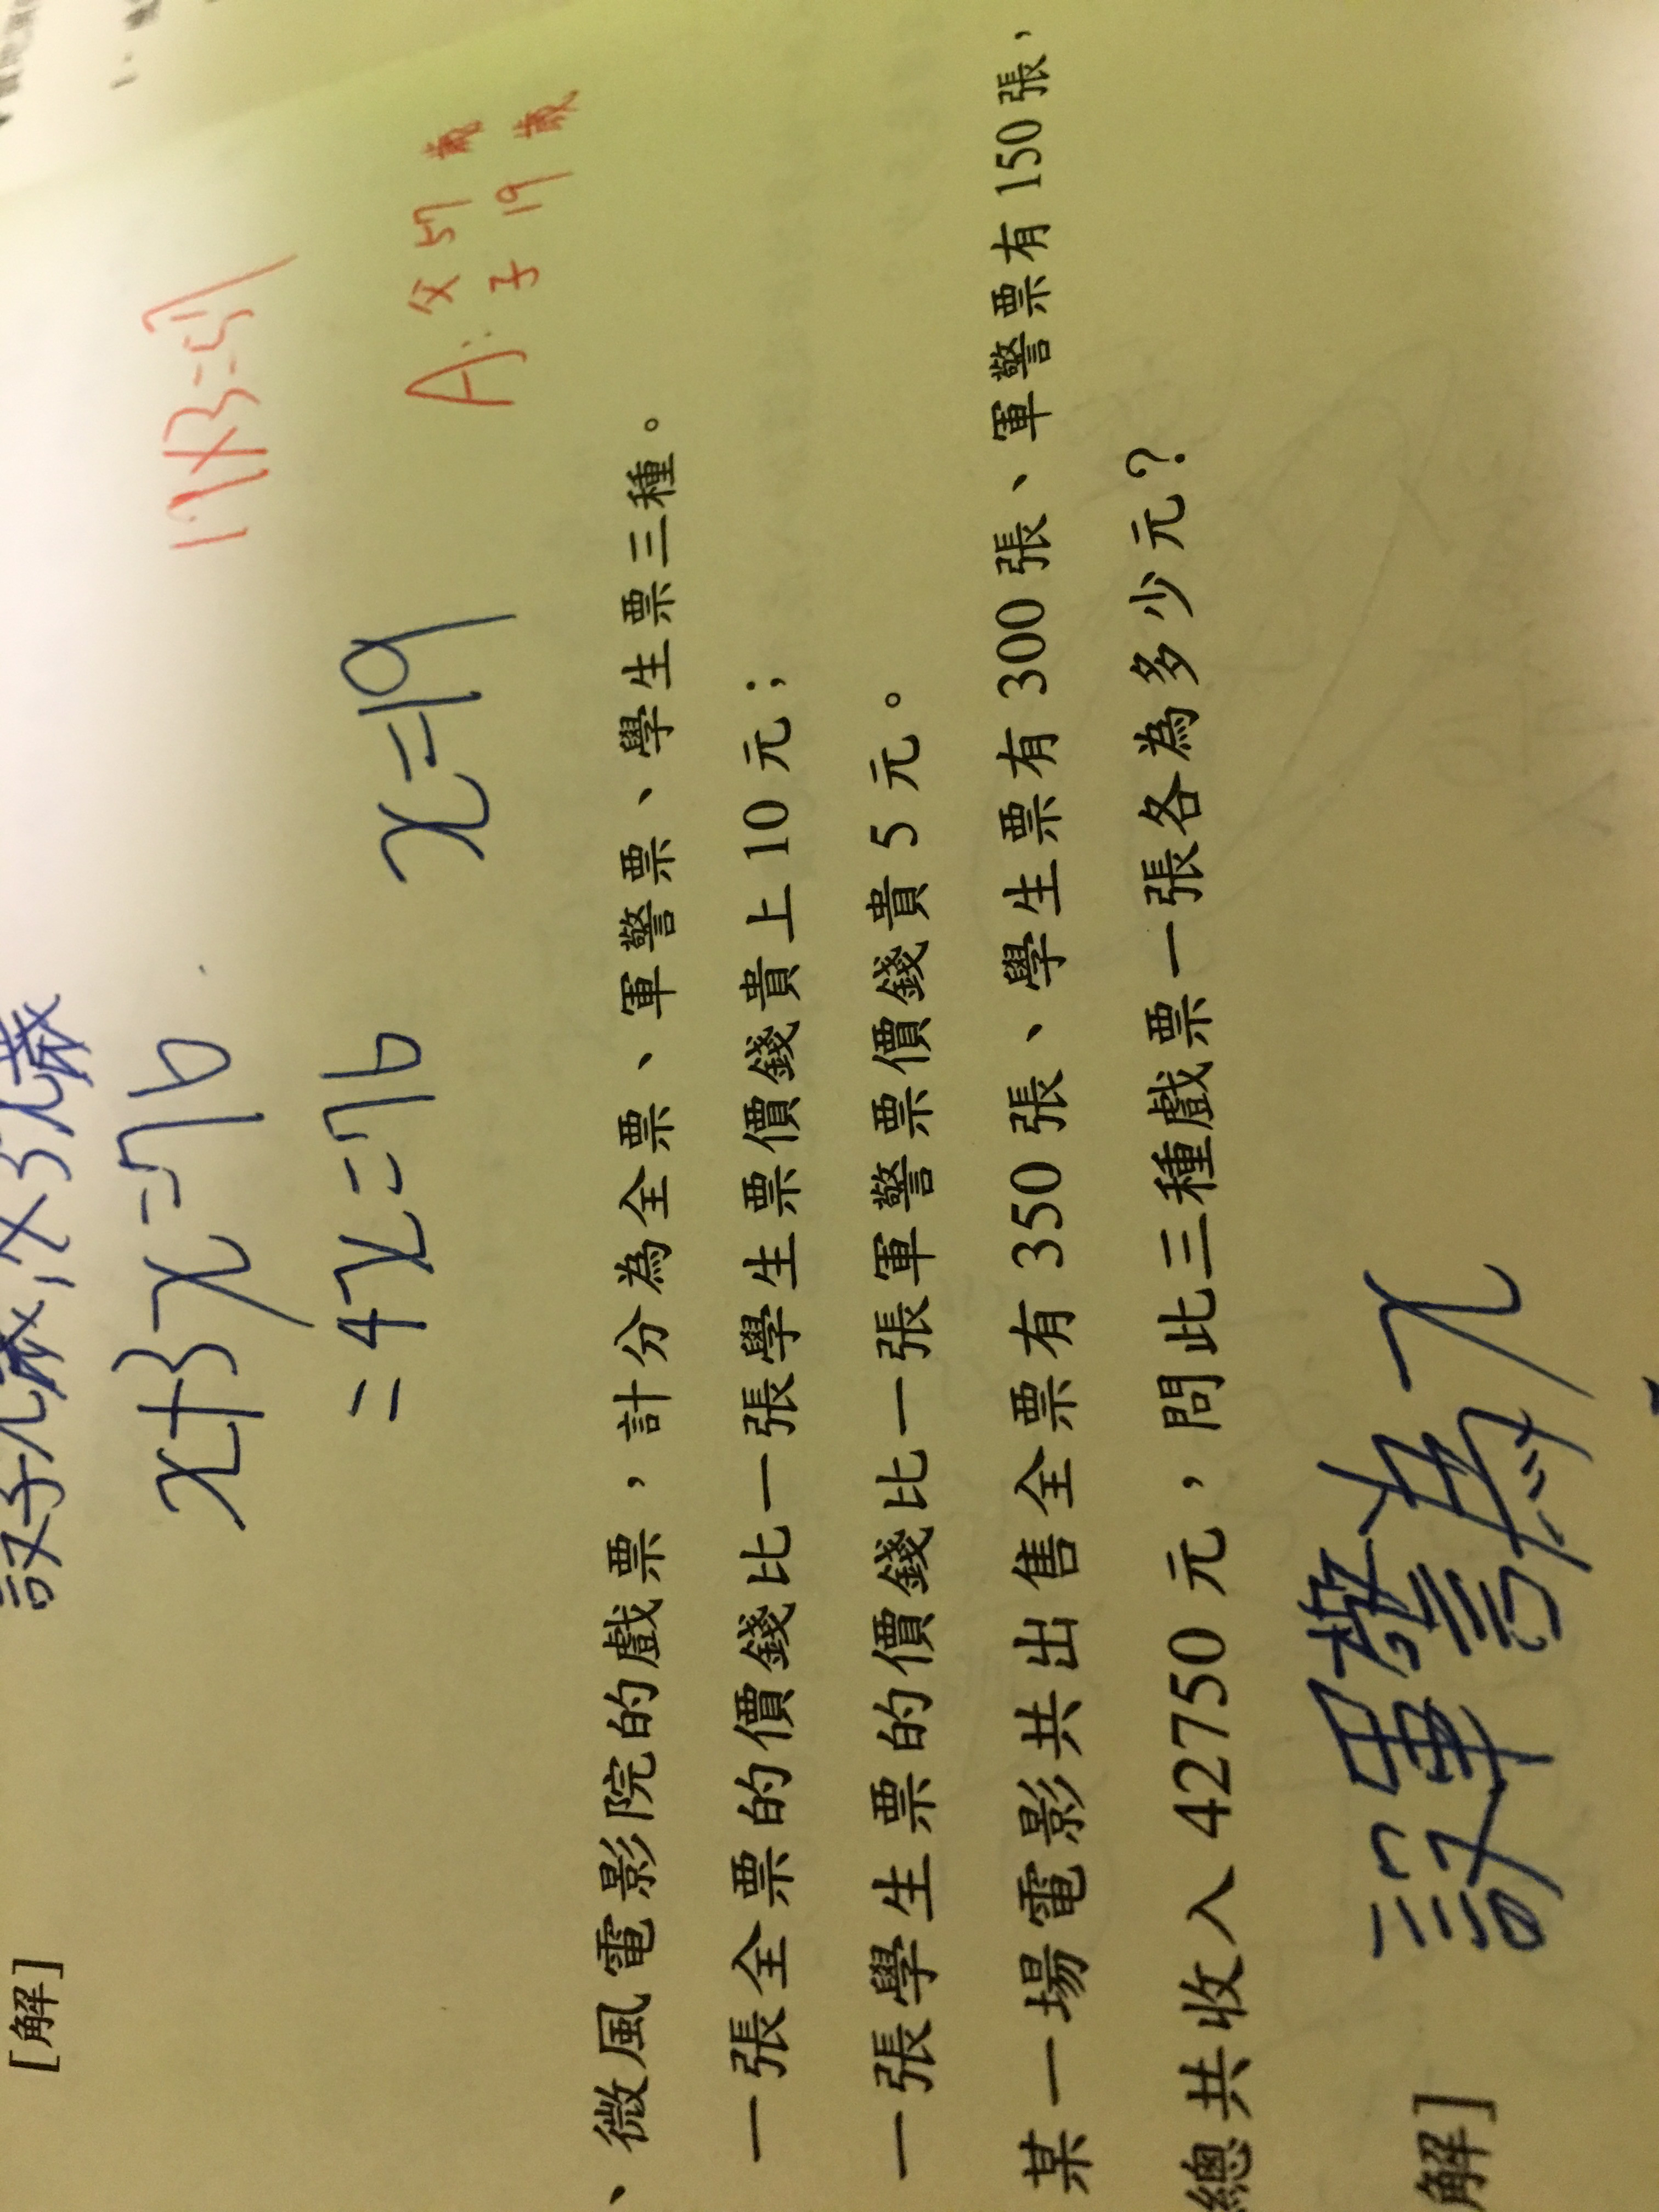 [解]
x+3x=76
=4x=76 x=19
19×3=57
A:父57歲
子19歲
、微風電影院的戲票，計分為全票、軍警票、學生票三種。
一張全票的價錢比一張學生票價錢貴上10元；
一張學生票的價錢比一張軍警票價錢貴5元。
某一場電影共出售全票有350張、學生票有300張、軍警票有150張，
總共收入42750元，問此三種戲票一張各為多少元？
解]
設軍警為x